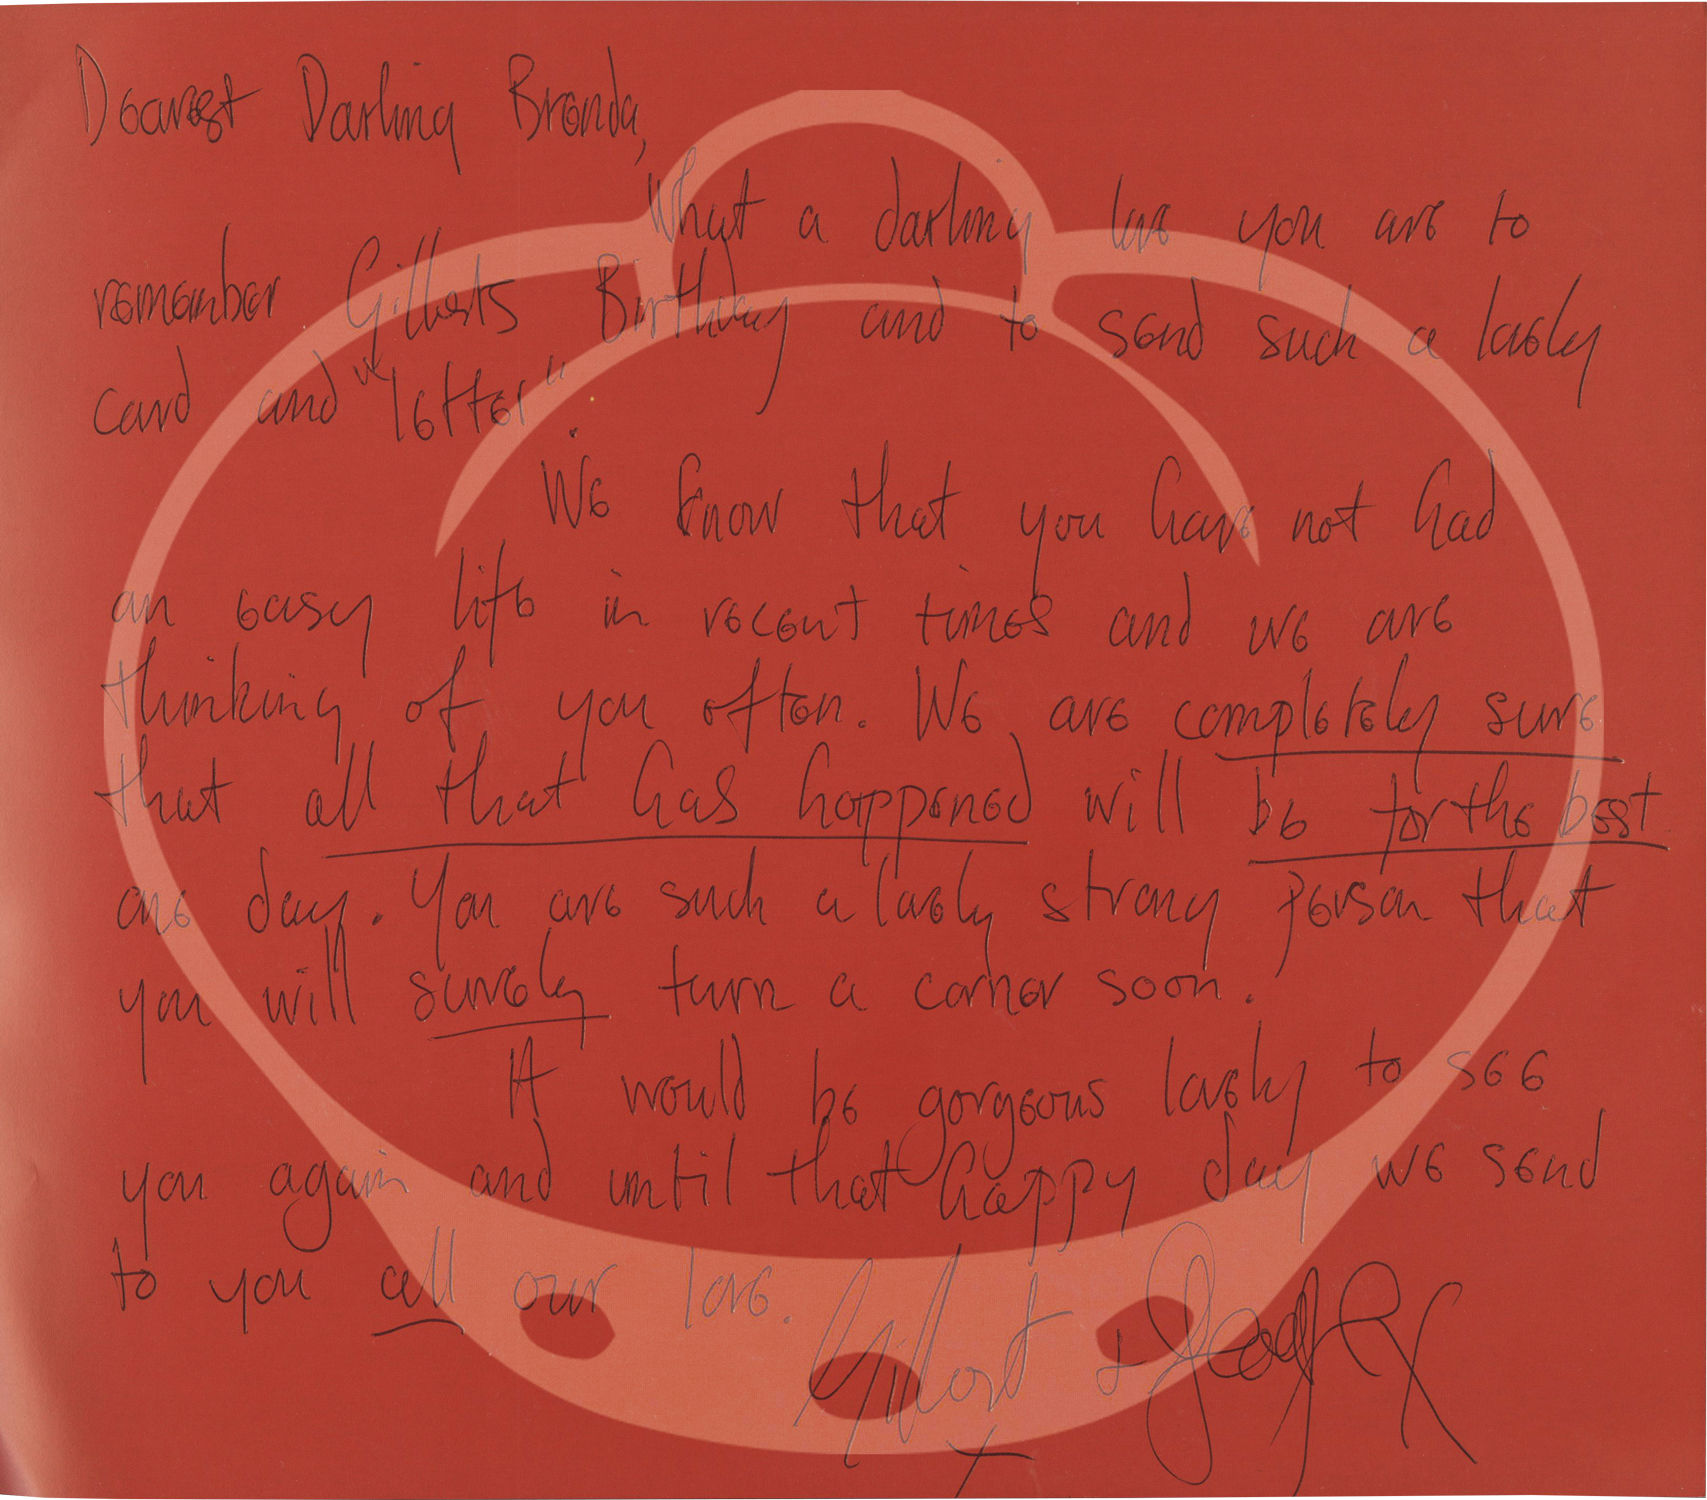 Dearest Darling Brenda,
What a darling love you are to
remember Gilberts Birthday and to send such a lovely
card and "letter".
We know that you have not had
an easy life in recent times and we are
thinking of you often. We are completely sure
that all that has happened will be for the best
one day. You are such a lovely strong person that
you will surely turn a corner soon.
It would be gorgeous lovely to see
you again and until that happy day we send
to you all our love.
Gilbert + George x
x